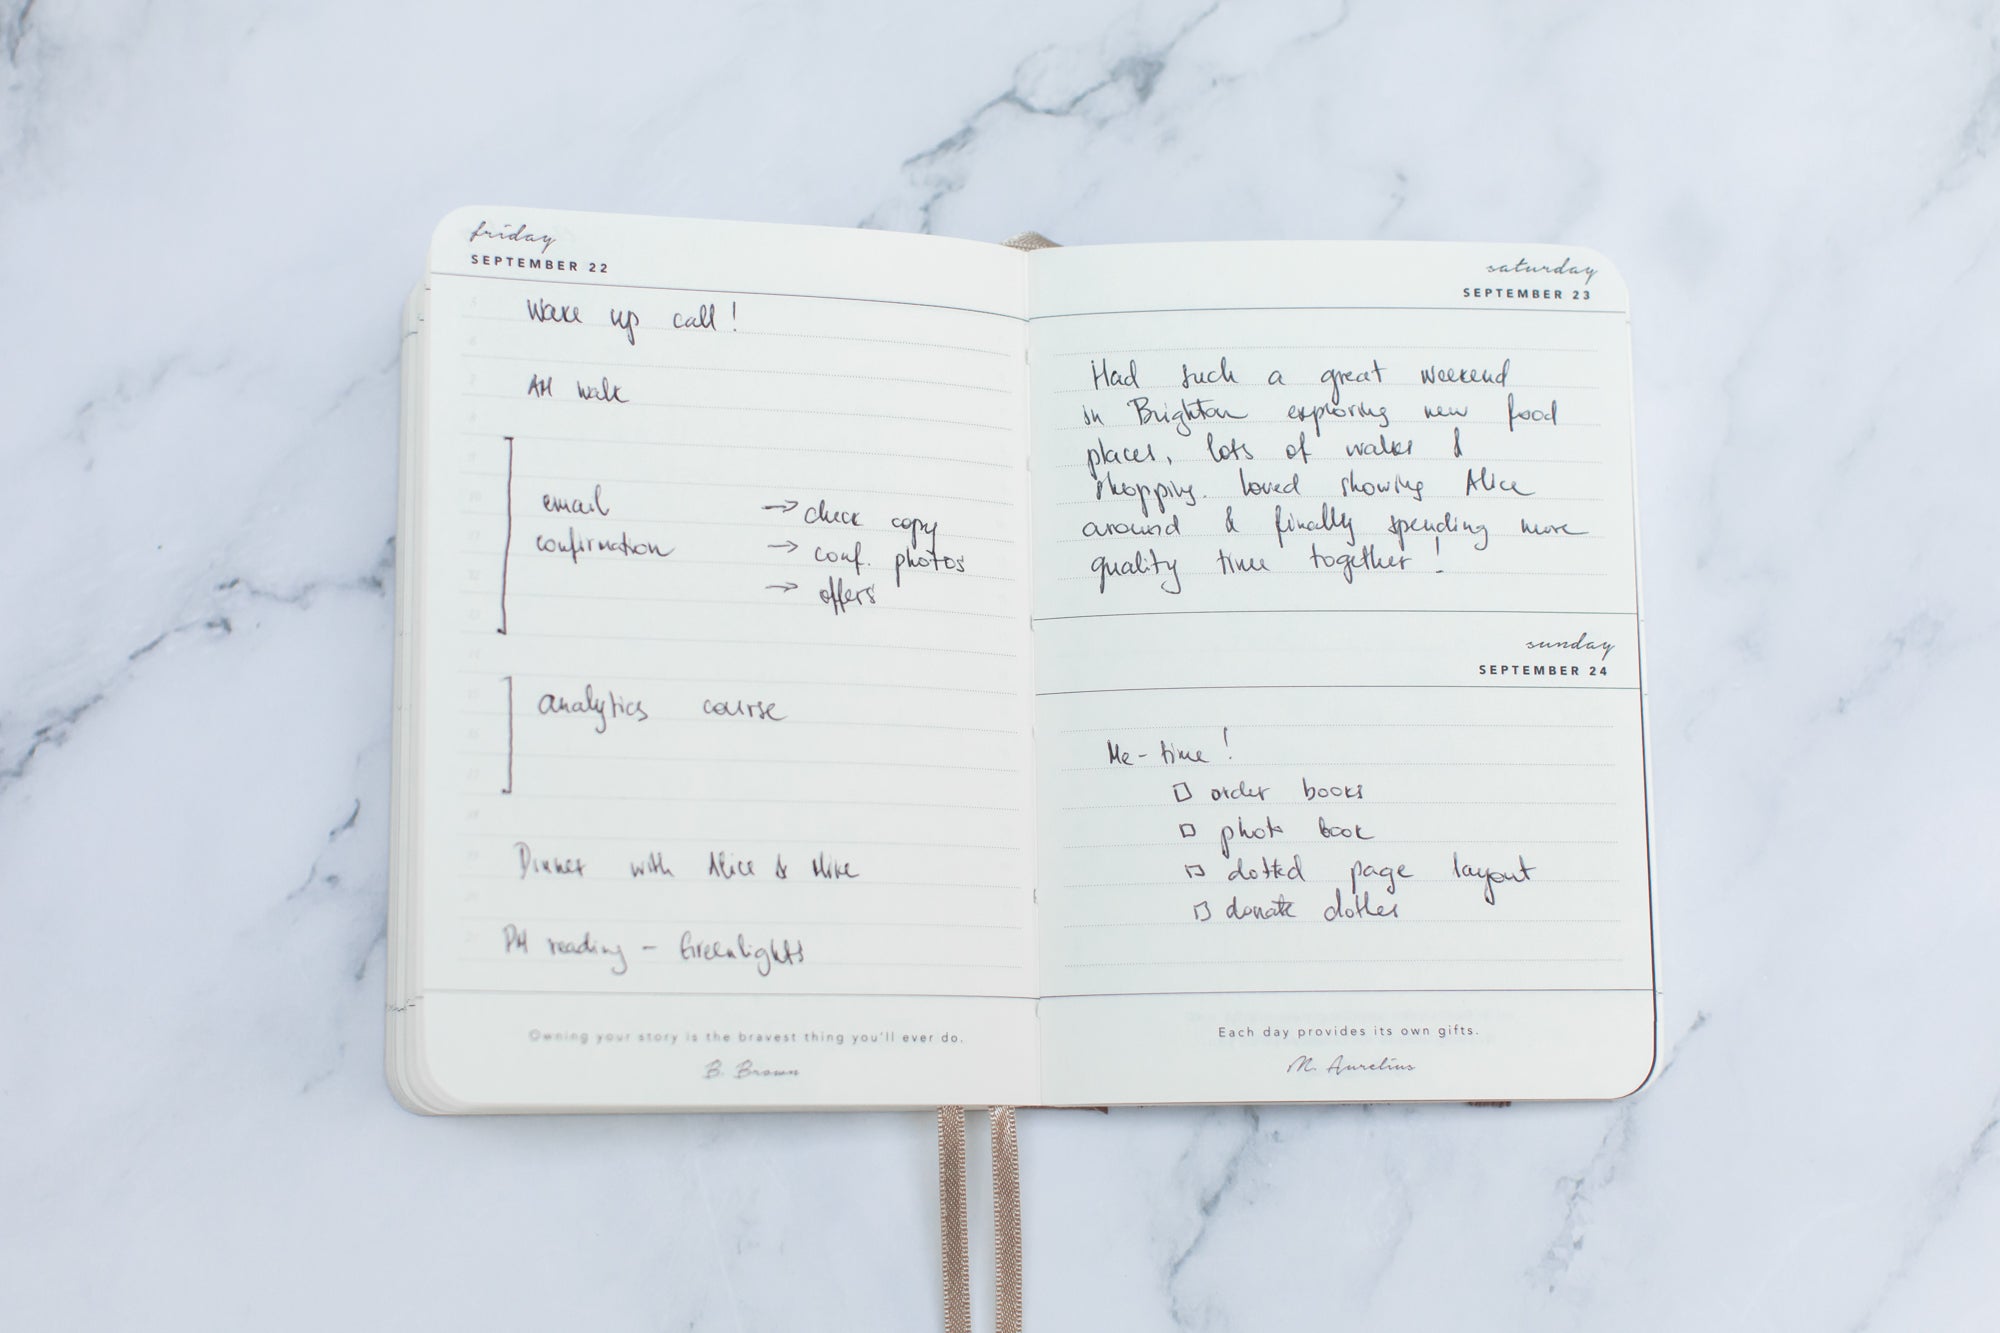 friday
SEPTEMBER 22
Wake up call!
AM walk
email → check copy
confirmation → conf. photos
→ offers
analytics course
Dinner with Alice & Mike
PM reading - Greenlights
Owning your story is the bravest thing you'll ever do.
B. Brown
saturday
SEPTEMBER 23
Had such a great weekend
in Brighton exploring new food
places, lots of walks &
shopping. loved showing Alice
around & finally spending more
quality time together!
sunday
SEPTEMBER 24
Me-time!
order books
photo book
dotted page layout
donate clothes
Each day provides its own gifts.
M. Aurelius